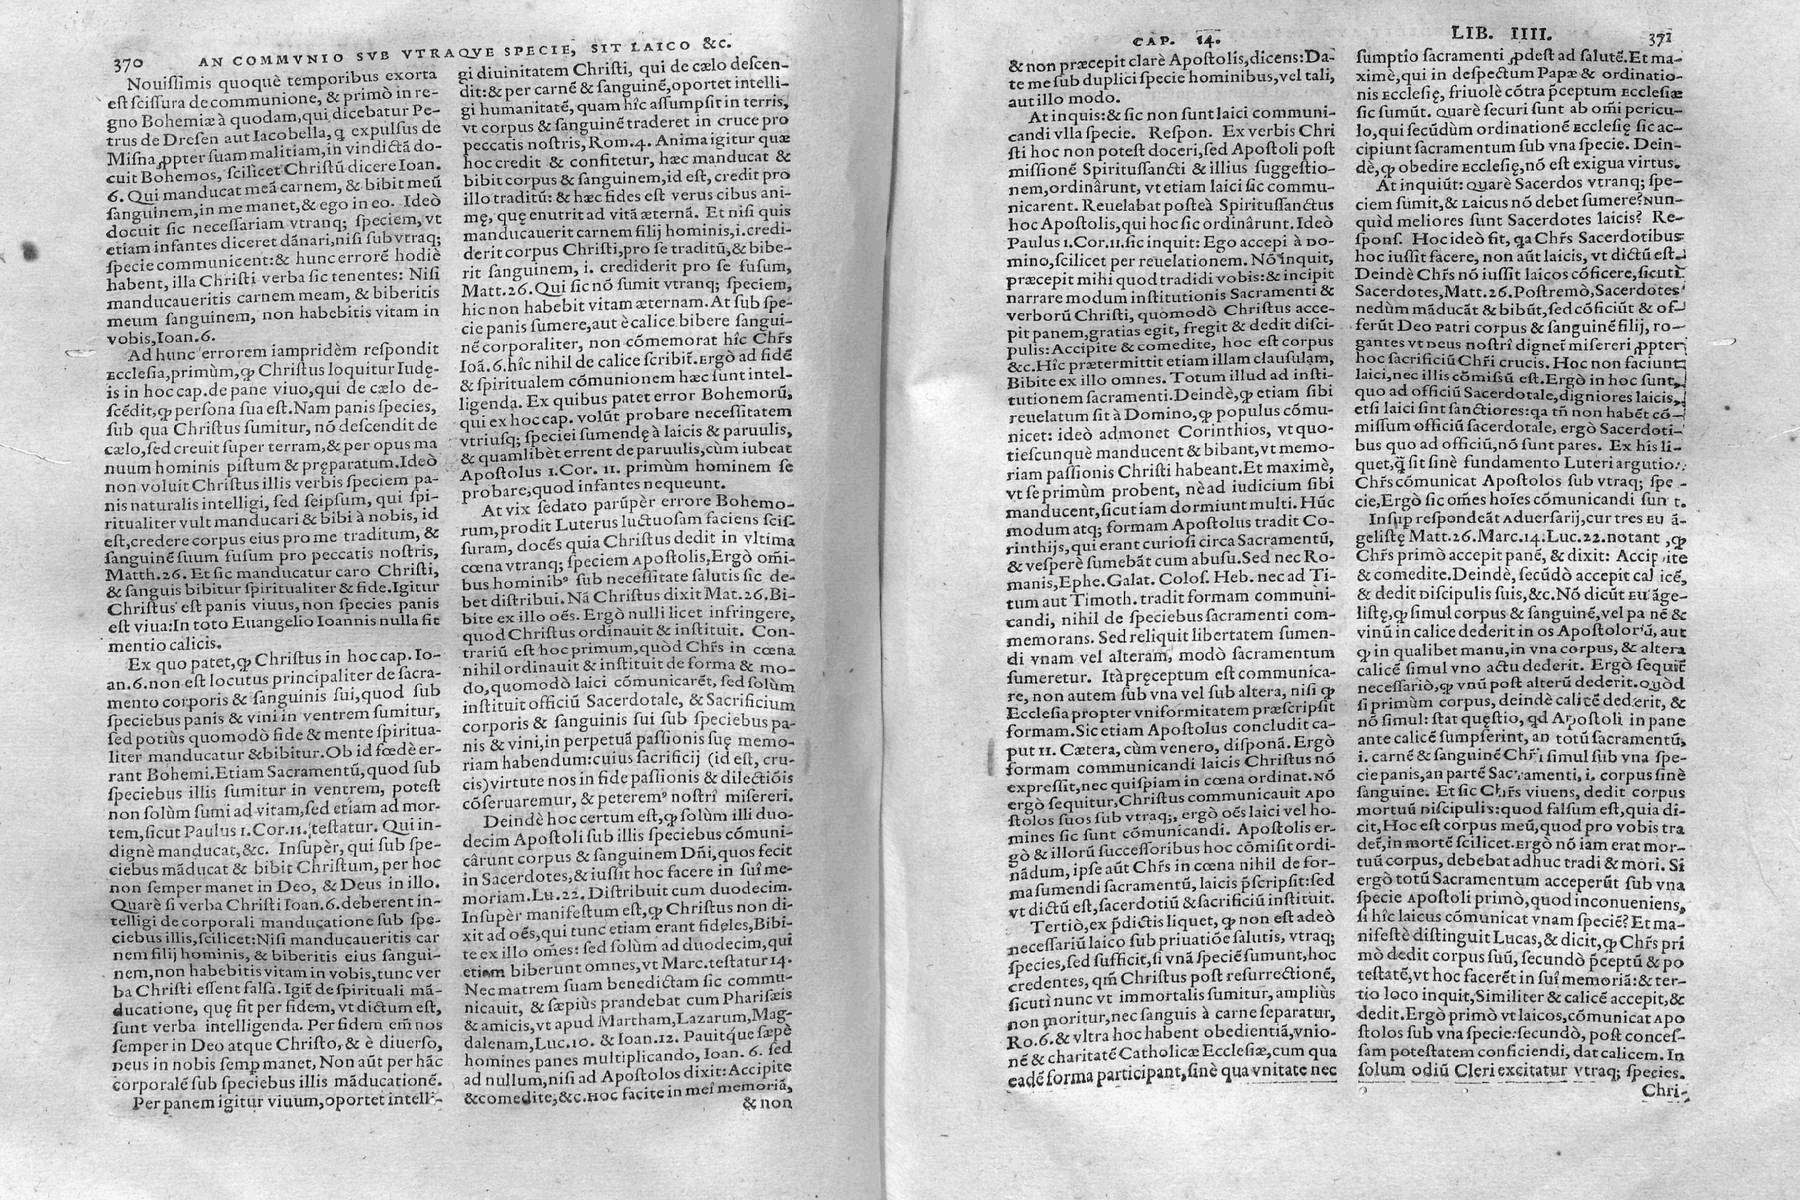 370 AN COMMVNIO SVB VTRAQVE SPECIE, SIT LAICO &c.
Nouissimis quoquè temporibus exorta
est scissura de communione, & primò in re-
gno Bohemiæ à quodam, qui dicebatur Pe-
trus de Dresen aut Iacobella, q̃ expulsus de
Misna ꝓpter suam malitiam, in vindictã do-
cuit Bohemos, scilicet Christũ dicere Ioan.
6. Qui manducat meã carnem, & bibit meũ
sanguinem, in me manet, & ego in eo. Ideò
docuit sic necessariam vtranq; speciem, vt
etiam infantes diceret dãnari, nisi sub vtraq;
specie communicent: & hunc errorẽ hodiè
habent, illa Christi verba sic tenentes: Nisi
manducaueritis carnem meam, & biberitis
meum sanguinem, non habebitis vitam in
vobis, Ioan. 6.
Ad hunc errorem iampridèm respondit
Ecclesia, primùm, ꝙ Christus loquitur Iudę-
is in hoc cap. de pane viuo, qui de cælo de-
scẽdit, ꝙ persona sua est. Nam panis species,
sub qua Christus sumitur, nõ descendit de
cælo, sed creuit super terram, & per opus ma
nuum hominis pistum & pręparatum. Ideò
non voluit Christus illis verbis speciem pa-
nis naturalis intelligi, sed seipsum, qui spi-
ritualiter vult manducari & bibi à nobis, id
est, credere corpus eius pro me traditum, &
sanguinẽ suum fusum pro peccatis nostris,
Matth. 26. Et sic manducatur caro Christi,
& sanguis bibitur spiritualiter & fide. Igitur
Christus est panis viuus, non species panis
est viua: In toto Euangelio Ioannis nulla fit
mentio calicis.
Ex quo patet, ꝙ Christus in hoc cap. Io-
an. 6. non est locutus principaliter de sacra-
mento corporis & sanguinis sui, quod sub
speciebus panis & vini in ventrem sumitur,
sed potiùs quomodò fide & mente spiritua-
liter manducatur & bibitur. Ob id fœdè er-
rant Bohemi. Etiam Sacramentũ, quod sub
speciebus illis sumitur in ventrem, potest
non solùm sumi ad vitam, sed etiam ad mor-
tem, sicut Paulus 1. Cor. 11. testatur. Qui in-
dignè manducat, &c. Insupèr, qui sub spe-
ciebus mãducat & bibit Christum, per hoc
non semper manet in Deo, & Deus in illo.
Quarè si verba Christi Ioan. 6. deberent in-
telligi de corporali manducatione sub spe-
ciebus illis, scilicet: Nisi manducaueritis car
nem filij hominis, & biberitis eius sangui-
nem, non habebitis vitam in vobis, tunc ver
ba Christi essent falsa. Igit̃ de spirituali mã-
ducatione, quę fit per fidem, vt dictum est,
sunt verba intelligenda. Per fidem em̃ nos
semper in Deo atque Christo, & è diuerso,
Deus in nobis semp manet, Non aũt per hãc
corporalẽ sub speciebus illis mãducationẽ.
Per panem igitur viuum, oportet intelli-
gi diuinitatem Christi, qui de cælo descen-
dit: & per carnẽ & sanguinẽ, oportet intelli-
gi humanitatẽ, quam hîc assumpsit in terris,
vt corpus & sanguinẽ traderet in cruce pro
peccatis nostris, Rom. 4. Anima igitur quæ
hoc credit & confitetur, hæc manducat &
bibit corpus & sanguinem, id est, credit pro
illo traditũ: & hæc fides est verus cibus ani-
mę, quę enutrit ad vitã æternã. Et nisi quis
manducauerit carnem filij hominis, i. credi-
derit corpus Christi, pro se traditũ, & bibe-
rit sanguinem, i. crediderit pro se fusum,
Matt. 26. Qui sic nõ sumit vtranq; speciem,
hic non habebit vitam æternam. At sub spe-
cie panis sumere, aut è calice bibere sangui-
nẽ corporaliter, non cõmemorat hîc Chr̃s
Ioã. 6. hîc nihil de calice scribit̃. Ergò ad fidẽ
& spiritualem cõmunionem hæc sunt intel-
ligenda. Ex quibus patet error Bohemorũ,
qui ex hoc cap. volũt probare necessitatem
vtriusq; speciei sumendę à laicis & paruulis,
& quamlibèt errent de paruulis, cùm iubeat
Apostolus 1. Cor. 11. primùm hominem se
probare, quod infantes nequeunt.
At vix sedato parũpèr errore Bohemo-
rum, prodit Luterus luctuosam faciens scis-
suram, docẽs quia Christus dedit in vltima
cœna vtranq; speciem Apostolis, Ergò om̃i-
bus hominib⁹ sub necessitate salutis sic de-
bet distribui. Nã Christus dixit Mat. 26. Bi-
bite ex illo oẽs. Ergò nulli licet infringere,
quod Christus ordinauit & instituit. Con-
trariũ est hoc primum, quòd Chr̃s in cœna
nihil ordinauit & instituit de forma & mo-
do, quomodò laici cõmunicarẽt, sed solùm
instituit officiũ Sacerdotale, & Sacrificium
corporis & sanguinis sui sub speciebus pa-
nis & vini, in perpetuã passionis suę memo-
riam habendum: cuius sacrificij (id est, cru-
cis) virtute nos in fide passionis & dilectiõis
cõseruaremur, & peterem⁹ nostrî misereri.
Deindè hoc certum est, ꝙ solùm illi duo-
decim Apostoli sub illis speciebus cõmuni-
cârunt corpus & sanguinem Dñi, quos fecit
in Sacerdotes, & iussit hoc facere in suî me-
moriam. Lu. 22. Distribuit cum duodecim.
Insupèr manifestum est, ꝙ Christus non di-
xit ad oẽs, qui tunc etiam erant fideles, Bibi-
te ex illo om̃es: sed solùm ad duodecim, qui
etiam biberunt omnes, vt Marc. testatur 14.
Nec matrem suam benedictam sic commu-
nicauit, & sæpiùs prandebat cum Pharisæis
& amicis, vt apud Martham, Lazarum, Mag-
dalenam, Luc. 10. & Ioan. 12. Pauitque sæpè
homines panes multiplicando, Ioan. 6. sed
ad nullum, nisi ad Apostolos dixit: Accipite
& comedite, &c. Hoc facite in meî memoriã,
& non
CAP. 14. LIB. IIII. 371
& non præcepit clarè Apostolis, dicens: Da-
te me sub duplici specie hominibus, vel tali,
aut illo modo.
At inquis: & sic non sunt laici communi-
candi vlla specie. Respon. Ex verbis Chri
sti hoc non potest doceri, sed Apostoli post
missionẽ Spiritussancti & illius suggestio-
nem, ordinârunt, vt etiam laici sic commu-
nicarent. Reuelabat posteà Spiritussanctus
hoc Apostolis, qui hoc sic ordinârunt. Ideò
Paulus 1. Cor. 11. sic inquit: Ego accepi à Do-
mino, scilicet per reuelationem. Nõ inquit,
præcepit mihi quod tradidi vobis: & incipit
narrare modum institutionis Sacramenti &
verborũ Christi, quomodò Christus acce-
pit panem, gratias egit, fregit & dedit disci-
pulis: Accipite & comedite, hoc est corpus
&c. Hîc prætermittit etiam illam clausulam,
Bibite ex illo omnes. Totum illud ad insti-
tutionem sacramenti. Deindè, ꝙ etiam sibi
reuelatum sit à Domino, ꝙ populus cõmu-
nicet: ideò admonet Corinthios, vt quo-
tiescunque manducent & bibant, vt memo-
riam passionis Christi habeant. Et maximè,
vt se primùm probent, nè ad iudicium sibi
manducent, sicut iam dormiunt multi. Hũc
modum atq; formam Apostolus tradit Co-
rinthijs, qui erant curiosi circa Sacramentũ,
& vesperè sumebãt cum abusu. Sed nec Ro-
manis, Ephe. Galat. Colos. Heb. nec ad Ti-
tum aut Timoth. tradit formam communi-
candi, nihil de speciebus sacramenti com-
memorans. Sed reliquit libertatem sumen-
di vnam vel alteram, modò sacramentum
sumeretur. Ità pręceptum est communica-
re, non autem sub vna vel sub altera, nisi ꝙ
Ecclesia propter vniformitatem præscripsit
formam. Sic etiam Apostolus concludit ca-
put 11. Cætera, cùm venero, disponã. Ergò
formam communicandi laicis Christus nõ
expressit, nec quispiam in cœna ordinat. Nõ
ergò sequitur, Christus communicauit Apo
stolos suos sub vtraq;, ergò oẽs laici vel ho-
mines sic sunt cõmunicandi. Apostolis er-
gò & illorũ successoribus hoc cõmisit ordi-
nãdum, ipse aũt Chr̃s in cœna nihil de for-
ma sumendi sacramentũ, laicis p̃scripsit: sed
vt dictũ est, sacerdotiũ & sacrificiũ instituit.
Tertiò, ex p̃dictis liquet, ꝙ non est adeò
necessariũ laico sub priuatiõe salutis, vtraq;
species, sed sufficit, si vnã speciẽ sumunt, hoc
credentes, qm̃ Christus post resurrectionẽ,
sicuti nunc vt immortalis sumitur, ampliùs
non moritur, nec sanguis à carne separatur,
Ro. 6. & vltra hoc habent obedientiã, vnio-
nẽ & charitatẽ Catholicæ Ecclesiæ, cum qua
eadẽ forma participant, sinè qua vnitate nec
sumptio sacramenti ꝓdest ad salutẽ. Et ma-
ximè, qui in despectum Papæ & ordinatio-
nis Ecclesię, friuolè cõtra p̃ceptum Ecclesiæ
sic sumũt. Quarè securi sunt ab om̃i pericu-
lo, qui secũdùm ordinationẽ Ecclesię sic ac-
cipiunt sacramentum sub vna specie. Dein-
dè, ꝙ obedire Ecclesię, nõ est exigua virtus.
At inquiũt: Quarè Sacerdos vtranq; spe-
ciem sumit, & Laicus nõ debet sumere? Nun-
quid meliores sunt Sacerdotes laicis? Re-
spons. Hoc ideò fit, qa Chr̃s Sacerdotibus
hoc iussit facere, non aũt laicis, vt dictũ est.
Deindè Chr̃s nõ iussit laicos cõficere, sicuti
Sacerdotes, Matt. 26. Postremò, Sacerdotes
nedùm mãducãt & bibũt, sed cõficiũt & of-
ferũt Deo Patri corpus & sanguinẽ filij, ro-
gantes vt Deus nostrî dignet̃ misereri ꝓpter
hoc sacrificiũ Chr̃i crucis. Hoc non faciunt
laici, nec illis cõmissũ est. Ergò in hoc sunt,
quo ad officiũ Sacerdotale, digniores laicis,
etsi laici sint sanctiores: qa tñ non habẽt cõ-
missum officiũ sacerdotale, ergò Sacerdoti-
bus quo ad officiũ, nõ sunt pares. Ex his li-
quet, q̃ sit sinè fundamento Luteri argutio:
Chr̃s cõmunicat Apostolos sub vtraq; spe-
cie, Ergò sic om̃es hoĩes cõmunicandi sunt.
Insup respondeãt Aduersarij, cur tres Euã-
gelistę Matt. 26. Marc. 14. Luc. 22. notant, ꝙ
Chr̃s primò accepit panẽ, & dixit: Accipite
& comedite. Deindè, secũdò accepit calicẽ,
& dedit Discipulis suis, &c. Nõ dicũt Euãge-
listę, ꝙ simul corpus & sanguinẽ, vel panẽ &
vinũ in calice dederit in os Apostolorũ, aut
ꝙ in qualibet manu, in vna corpus, & altera
calicẽ simul vno actu dederit. Ergò sequit̃
necessariò, ꝙ vnũ post alterũ dederit. Quòd
si primùm corpus, deindè calicẽ dederit, &
nõ simul: stat quęstio, qd Apostoli in pane
ante calicẽ sumpserint, an totũ sacramentũ,
i. carnẽ & sanguinẽ Chr̃i simul sub vna spe-
cie panis, an partẽ Sacramenti, i. corpus sinè
sanguine. Et sic Chr̃s viuens, dedit corpus
mortuũ Discipulis: quod falsum est, quia di-
cit, Hoc est corpus meũ, quod pro vobis tra
det̃, in mortẽ scilicet. Ergò nõ iam erat mor-
tuũ corpus, debebat adhuc tradi & mori. Si
ergò totũ Sacramentum acceperũt sub vna
specie Apostoli primò, quod inconueniens,
si hîc laicus cõmunicat vnam speciẽ? Et ma-
nifestè distinguit Lucas, & dicit, ꝙ Chr̃s pri
mò dedit corpus suũ, secundò p̃ceptũ & po
testatẽ, vt hoc facerẽt in suî memoriã: & ter-
tio loco inquit, Similiter & calicẽ accepit, &
dedit. Ergò primò vt laicos, cõmunicat Apo
stolos sub vna specie: secundò, post conces-
sam potestatem conficiendi, dat calicem. In
solum odiũ Cleri excitatur vtraq; species.
Chri-